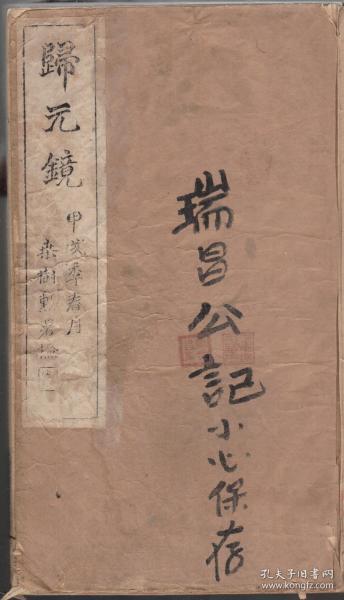 瑞昌公記小心保存
歸元鏡
甲戌季春月
桑樹勳署檢
孔夫子旧书网
www.kongfz.com